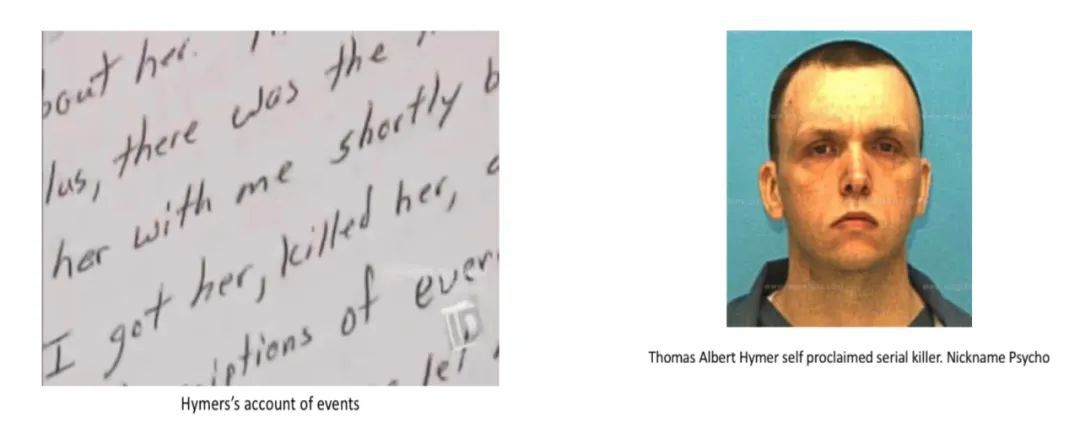 bout her.
lus, there was the
her with me shortly b
I got her, killed her, a
iptions of ever
let
ID
Hymers's account of events
Thomas Albert Hymer self proclaimed serial killer. Nickname Psycho